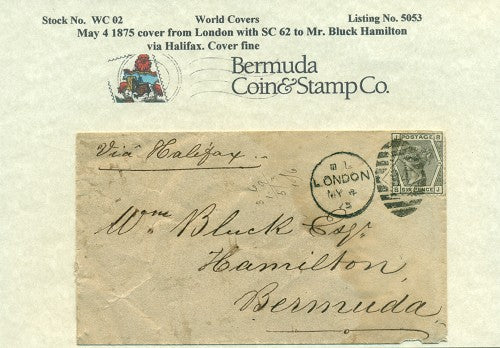 Stock No. WC 02 World Covers Listing No. 5053
May 4 1875 cover from London with SC 62 to Mr. Bluck Hamilton
via Halifax. Cover fine
Bermuda
Coin&Stamp Co.
Via Halifax.
LONDON
MY 4
75
POSTAGE
SIX PENCE
Wm Bluck Esqr.
Hamilton
Bermuda.